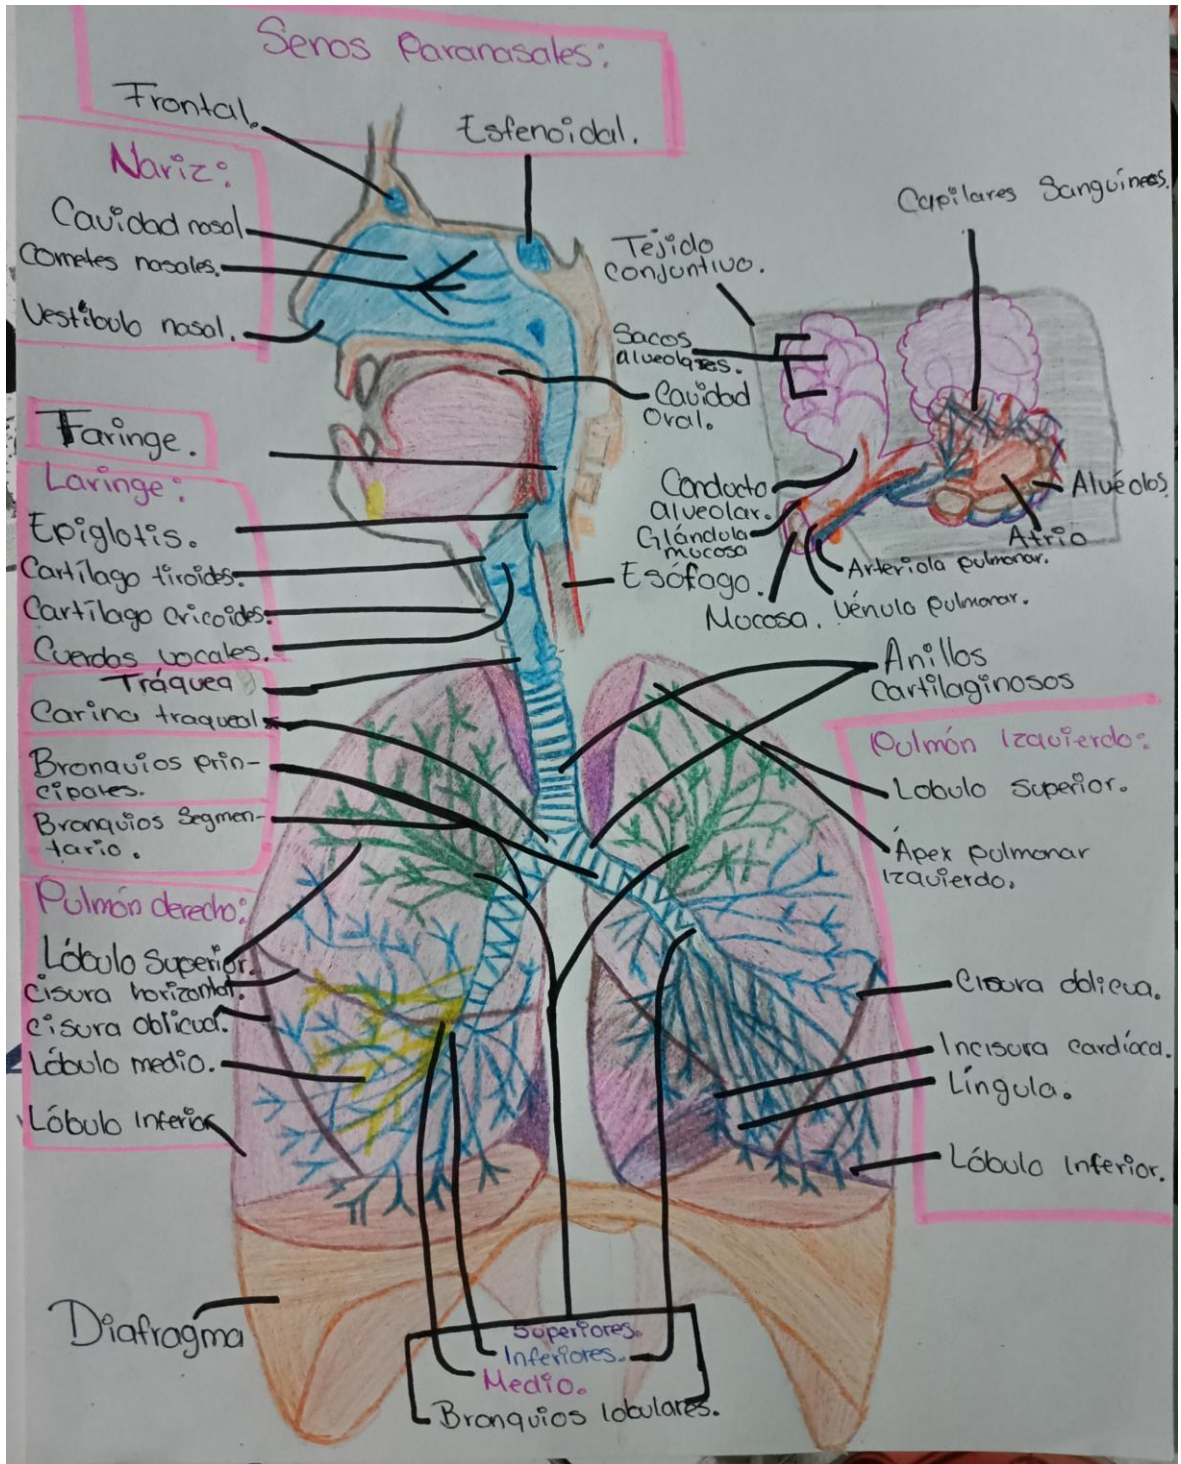 Senos Paranasales:
Frontal.
Esfenoidal.
Nariz:
Cavidad nasal
Cornetes nasales.
Vestíbulo nasal.
Faringe.
Laringe:
Epiglotis.
Cartílago tiroides.
Cartílago cricoides.
Cuerdas vocales.
Tráquea
Carina traqueal
Bronquios prin-
cipales.
Bronquios Segmen-
tario.
Pulmón derecho:
Lóbulo Superior.
cisura horizontal.
cisura Oblicua.
Lóbulo medio.
Lóbulo Inferior
Diafragma
Capilares Sanguíneos.
Tejido
conjuntivo.
Sacos
alveolares.
Cavidad
Oral.
Conducto
alveolar.
Glándula
mucosa
Alvéolos.
Atrio
Arteriola pulmonar.
Esófago.
Mucosa.
Vénula pulmonar.
Anillos
cartilaginosos
Pulmón Izquierdo:
Lobulo Superior.
Ápex pulmonar
Izquierdo.
Cisura oblicua.
Incisura cardíaca.
Língula.
Lóbulo Inferior.
Superiores.
Inferiores.
Medio.
Bronquios lobulares.